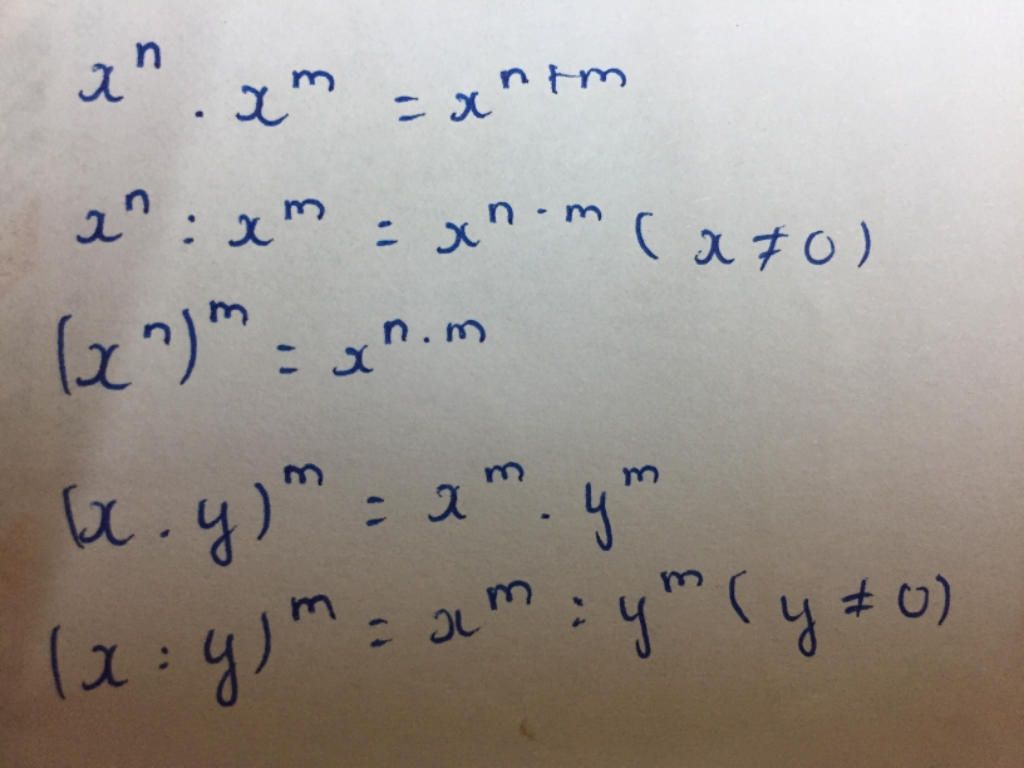 xⁿ . xᵐ = xⁿ⁺ᵐ
xⁿ : xᵐ = xⁿ⁻ᵐ ( x ≠ 0 )
(xⁿ)ᵐ = xⁿ·ᵐ
(x . y)ᵐ = xᵐ . yᵐ
(x : y)ᵐ = xᵐ : yᵐ ( y ≠ 0)